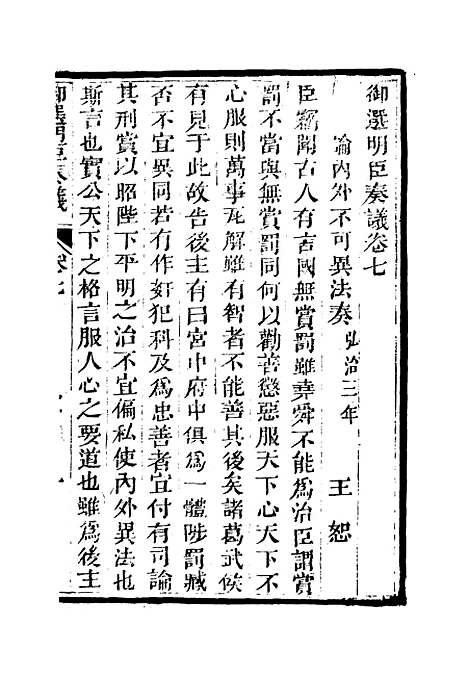 御選明臣奏議卷七
論內外不可異法奏 弘治三年 王恕
臣竊聞古人有言國無賞罰雖堯舜不能為治臣謂賞
罰不當與無賞罰同何以勸善懲惡服天下心天下不
心服則萬事瓦解雖有智者不能善其後矣諸葛武侯
有見于此故告後主有曰宮中府中俱為一體陟罰臧
否不宜異同若有作奸犯科及為忠善者宜付有司論
其刑賞以昭陛下平明之治不宜偏私使內外異法也
斯言也實公天下之格言服人心之要道也雖為後主
御選明臣奏議 卷七